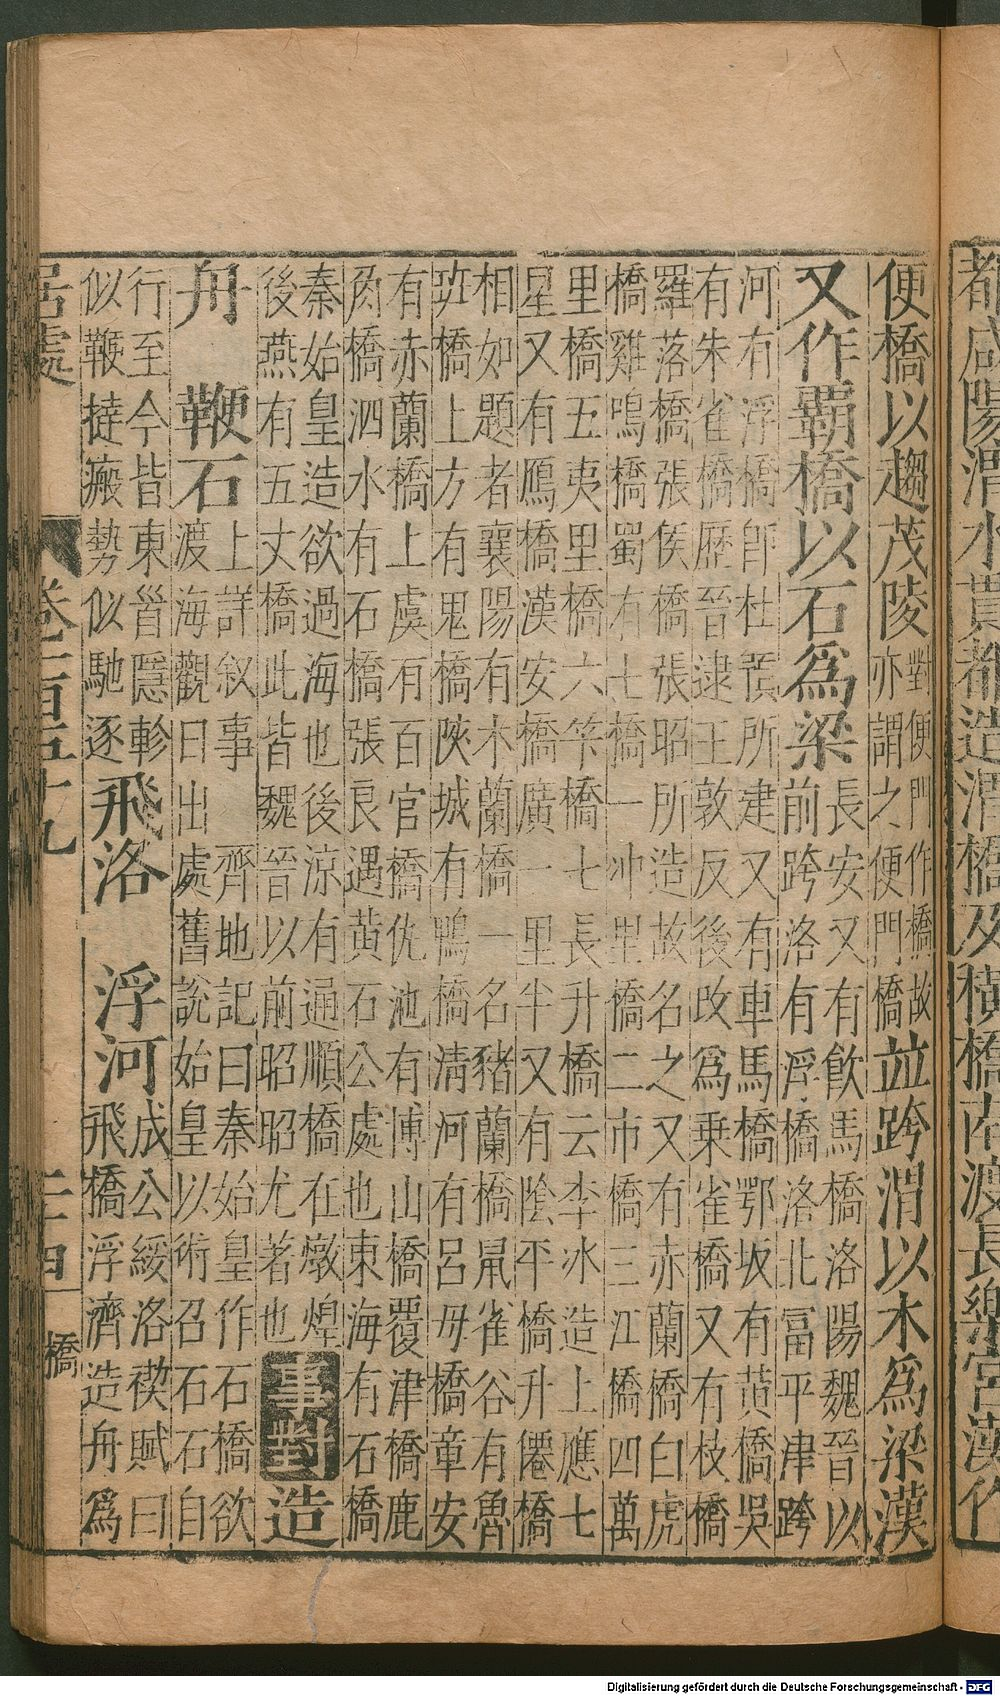 都咸陽渭水貫都造渭橋及橫橋南渡長樂宮漢作
便橋以趨茂陵
對便門作橋故
亦謂之便門橋
並跨渭以木為梁漢
又作霸橋以石為梁
長安又有飲馬橋洛陽魏晉以
前跨洛有浮橋洛北富平津跨
河有浮橋即杜預所建又有車馬橋鄂坂有黃橋吳
有朱雀橋歷晉逮王敦反後改為乗雀橋又有枝橋
羅落橋張侯橋張昭所造故名之又有赤蘭橋白虎
橋雞鳴橋蜀有七橋一冲里橋二市橋三江橋四萬
里橋五夷里橋六笮橋七長升橋云李冰造上應七
星又有鴈橋漢安橋廣一里半又有陰平橋升僊橋
相如題者襄陽有木蘭橋一名豬蘭橋鼠雀谷有魯
班橋上方有鬼橋陜城有鴨橋清河有呂毋橋章安
有赤蘭橋上虞有百官橋仇池有博山橋覆津橋鹿
角橋泗水有石橋張良遇黃石公處也東海有石橋
秦始皇造欲過海也後涼有通順橋在燉煌
後燕有五丈橋此皆魏晉以前昭昭尤著也
事對 造
舟 鞭石
上詳叙事 齊地記曰秦始皇作石橋欲
渡海觀日出處舊說始皇以術召石石自
行至今皆東首隱軫
似鞭撻瘢勢似馳逐
飛洛 浮河
成公綏洛禊賦曰
飛橋浮濟造舟為
居處 卷一百五十九 二十四 橋
Digitalisierung gefördert durch die Deutsche Forschungsgemeinschaft - DFG